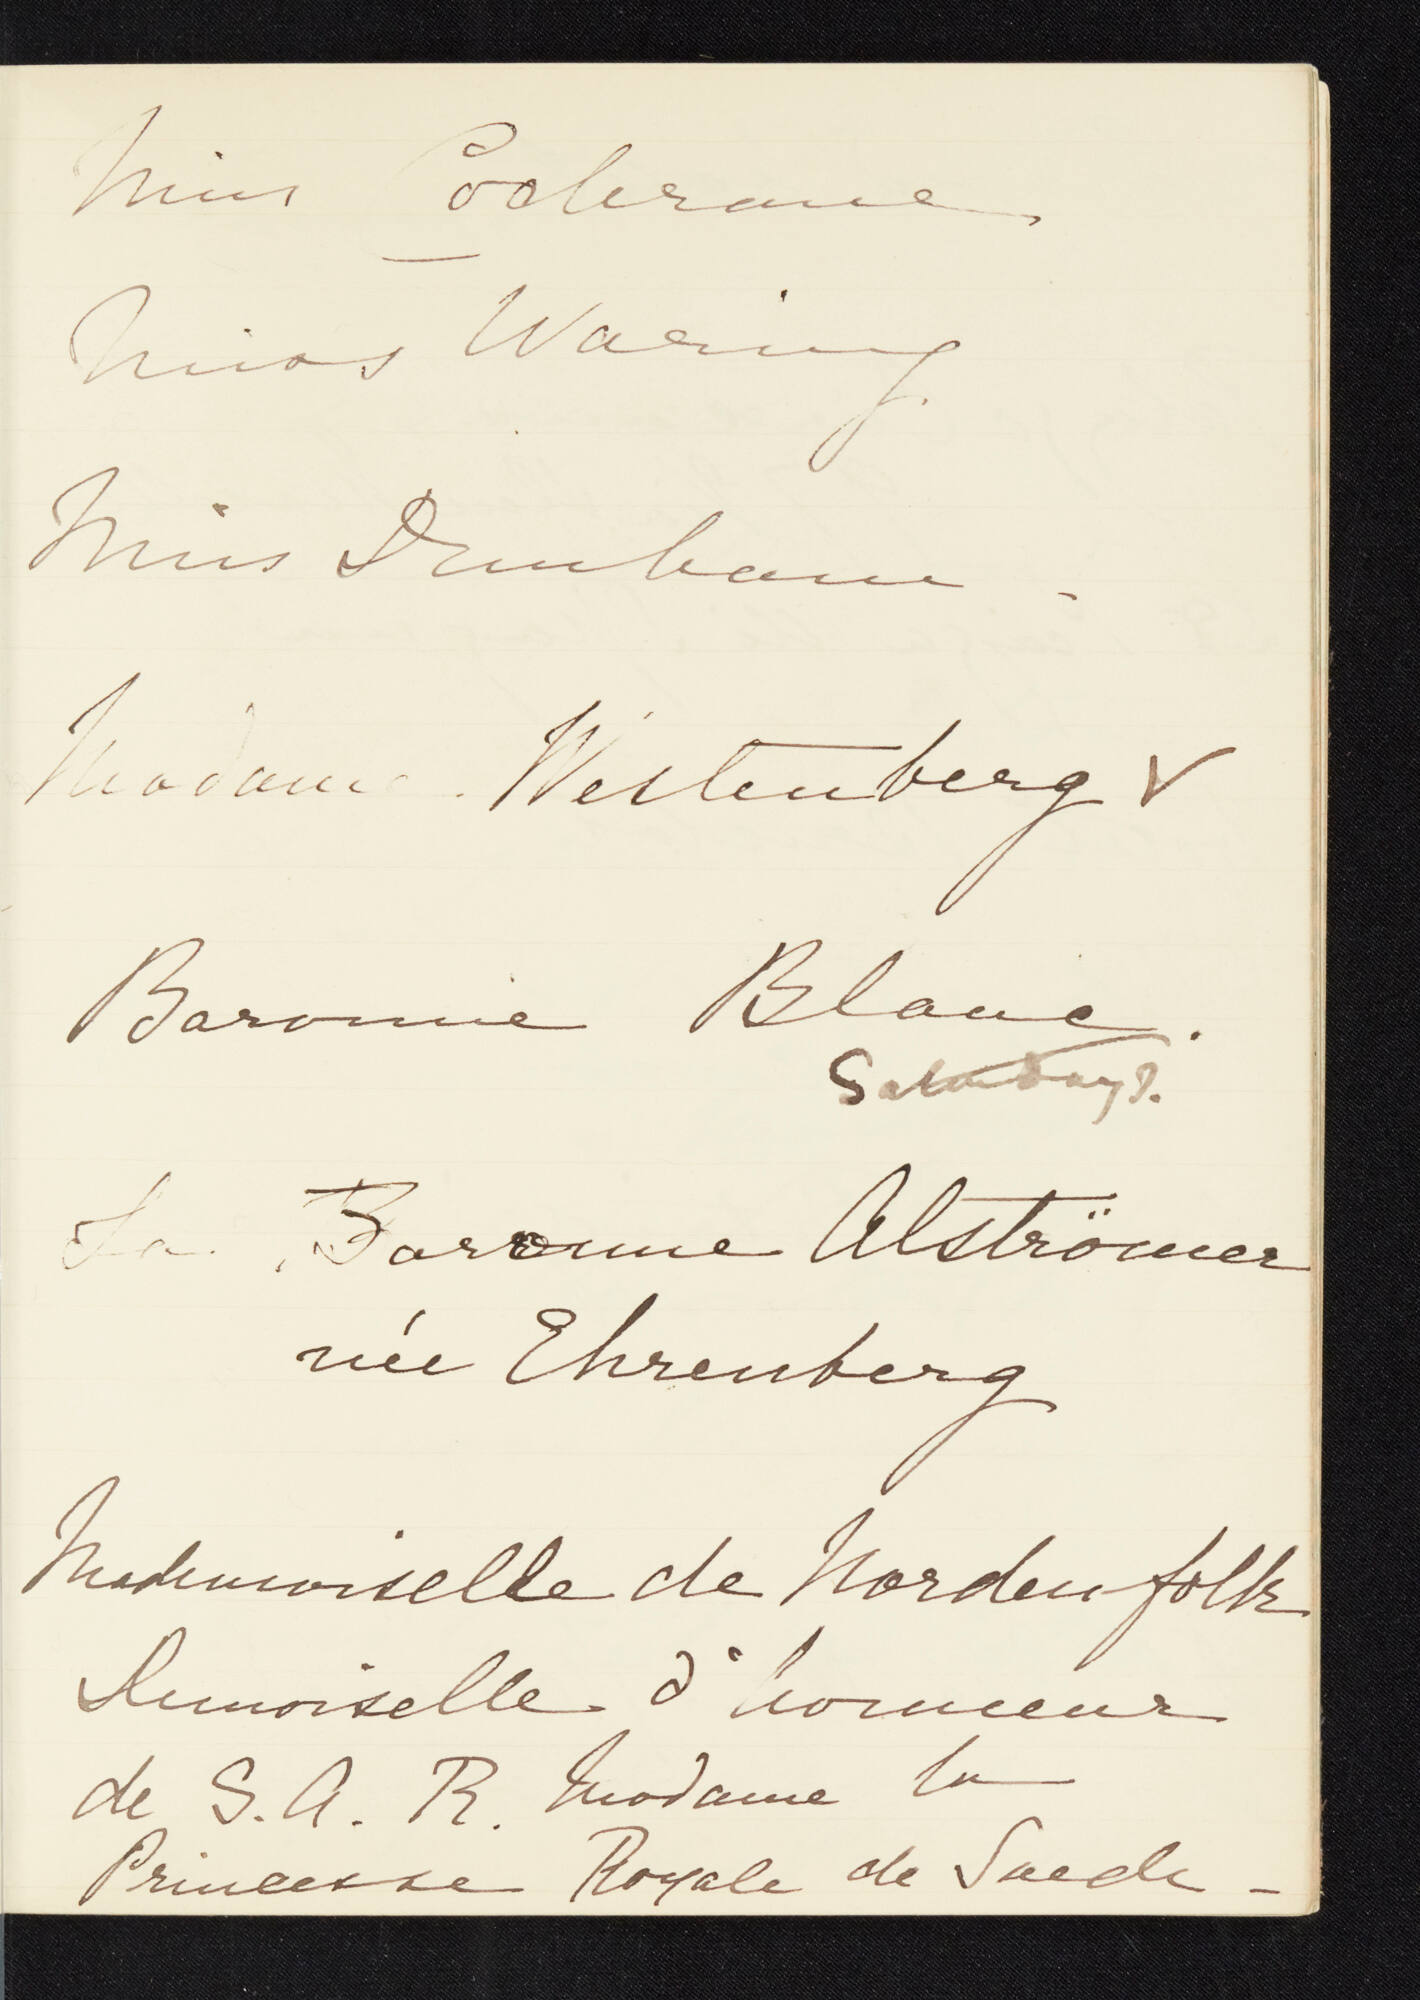 Miss Cochrane
Miss Waring
Miss Dunham -
Madame Westenberg ✓
Baronne Blanc.
Saturdays.
La Baronne Alströmer
née Ehrenberg
Mademoiselle de Nordenfolk
Demoiselle d'honneur
de S. A. R. Madame la
Princesse Royale de Suede -